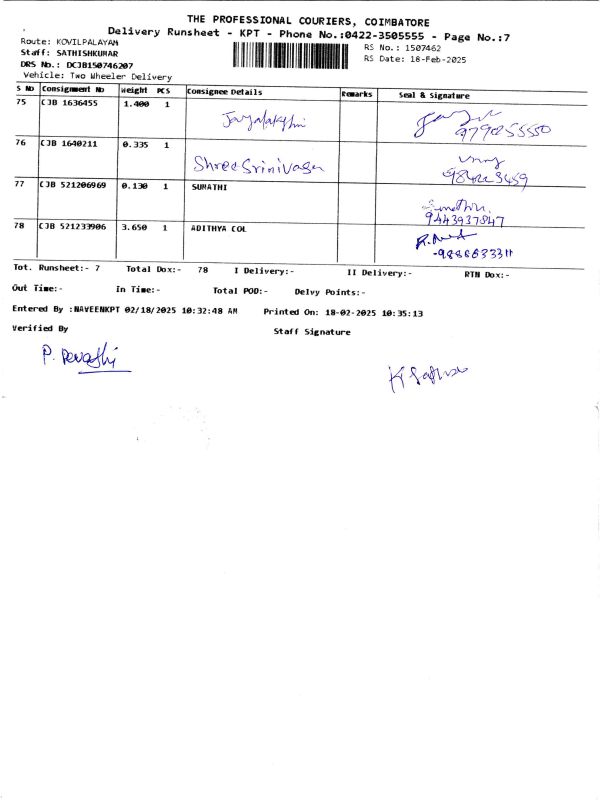 THE PROFESSIONAL COURIERS, COIMBATORE
Delivery Runsheet - KPT - Phone No.:0422-3505555 - Page No.:7
Route: KOVILPALAYAM
RS No.: 1507462
Staff: SATHISHKUMAR
RS Date: 18-Feb-2025
DRS No.: DCJB150746207
Vehicle: Two Wheeler Delivery
S No Consignment No Weight PCS Consignee Details Remarks Seal & Signature
75 CJB 1636455 1.400 1 Jayalakshmi
76 CJB 1640211 0.335 1 Shree Srinivasa
77 CJB 521206969 0.130 1 SUMATHI
9443937847
78 CJB 521233906 3.650 1 ADITHYA COL
Tot. Runsheet:- 7 Total Dox:- 78 I Delivery:- II Delivery:- RTN Dox:-
Out Time:- In Time:- Total POD:- Delvy Points:-
Entered By :NAVEENKPT 02/18/2025 10:32:48 AM Printed On: 18-02-2025 10:35:13
Verified By Staff Signature